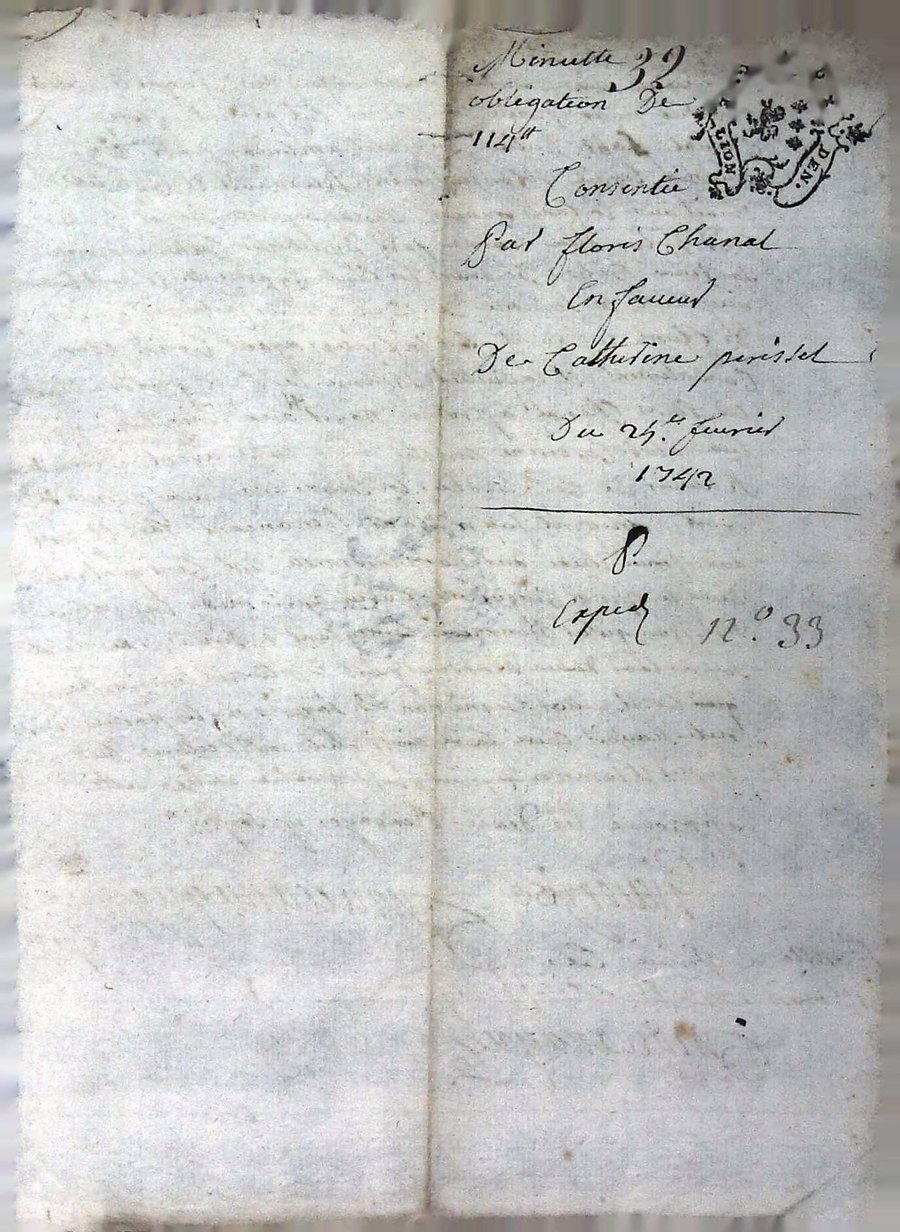 Minutte 39
obligation De
114tt
Consentie
Par floris Chanal
En faveur
De Catherine perissel
Du 24.e fevrier
1742
P.
Exped
N.o 33
DEN.